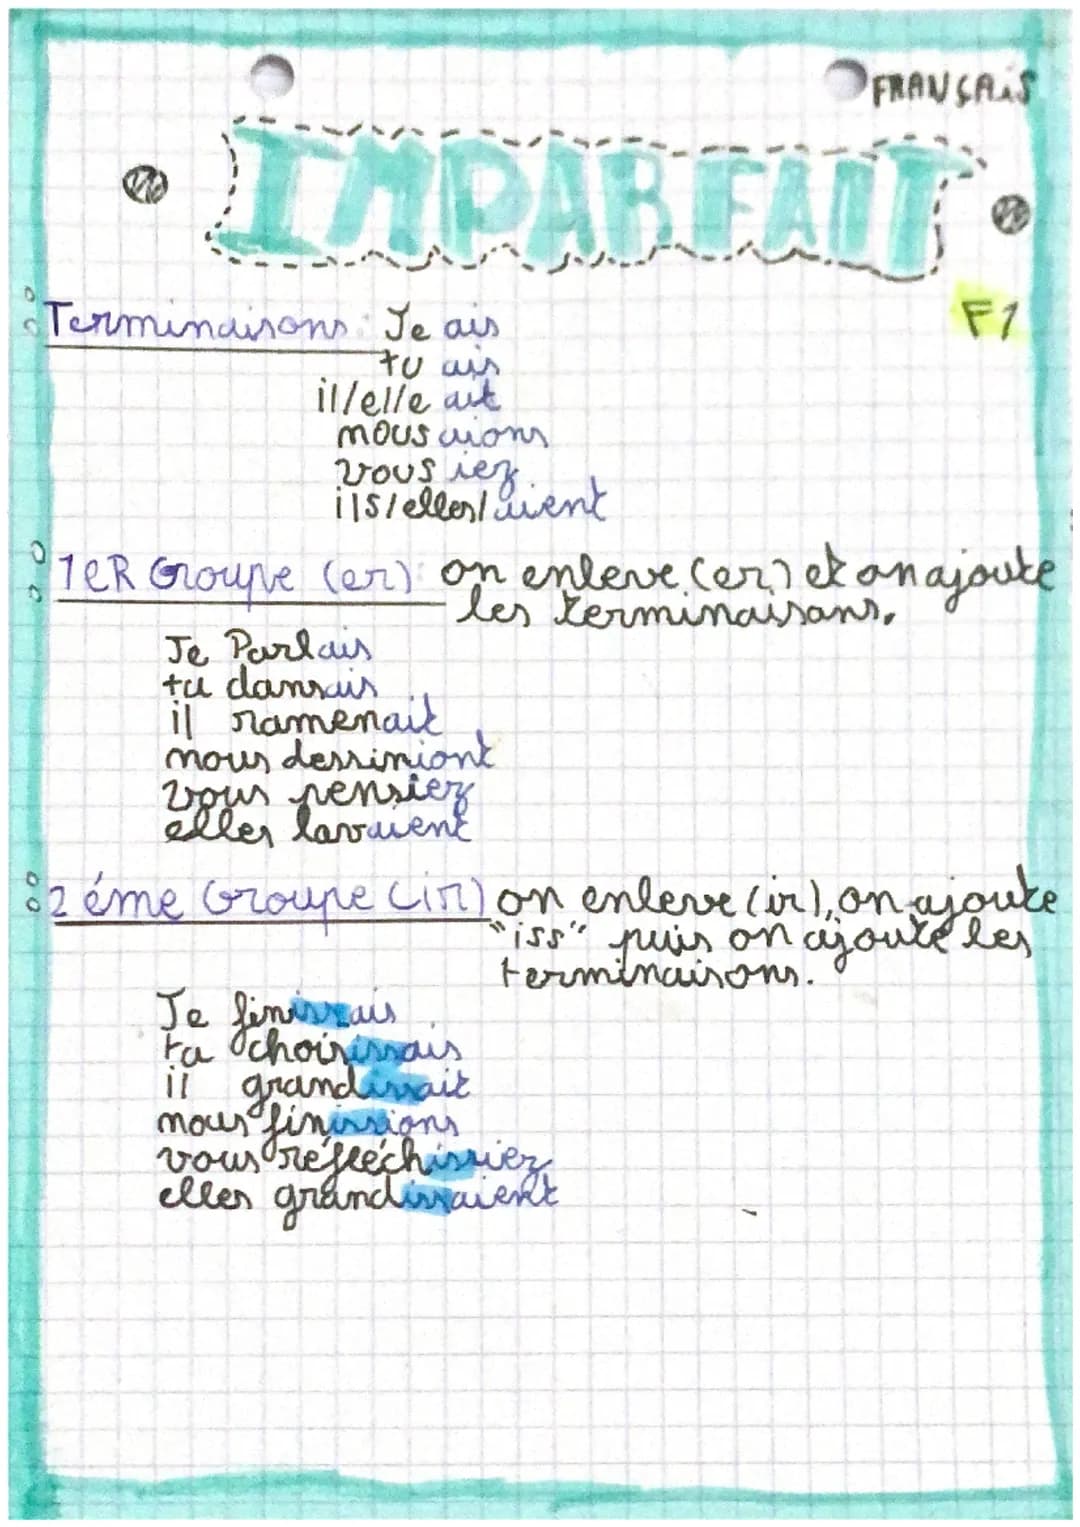 FRANÇAiS
IMPARFAIT
F1
Terminaisons: Je ais
tu ais
il/elle ait
nous aions
vous iez
ils/elles/aient
1eR Groupe (er): on enleve (er) et on ajoute
les terminaisans.
Je Parlais
tu dansais
il ramenait
nous dessiniont
vous pensiez
elles lavaient
2 éme Groupe (ir) on enleve (ir), on ajoute
"iss" puis on ajoute les
terminaisons.
Je finissais
tu choisissais
il grandissait
nous finissions
vous réfléchissiez
elles grandissaient